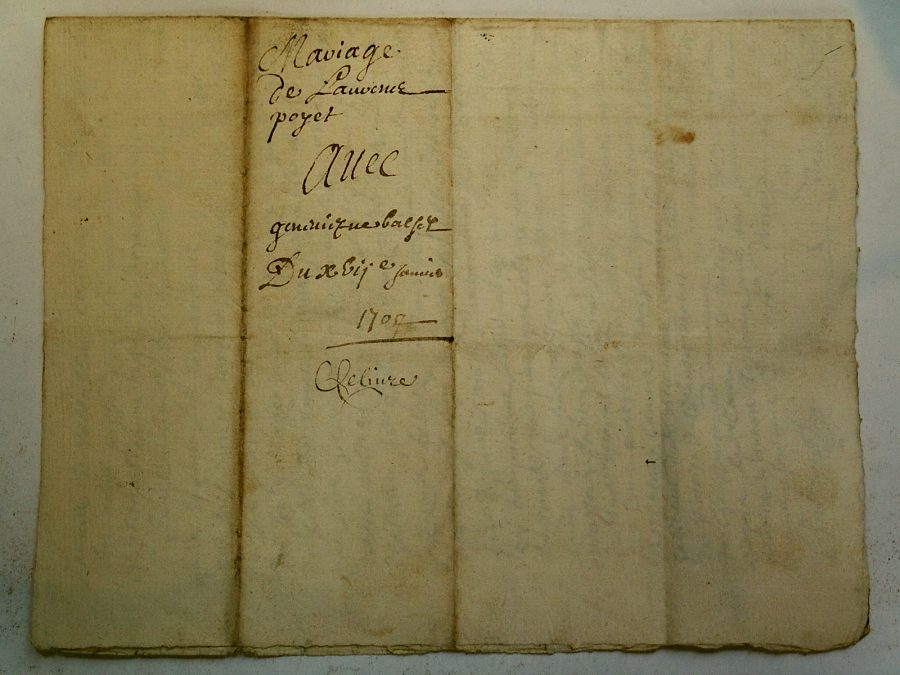 Mariage
de Laurence
poyet
Auec
geneuiefue balset
Du xbije Januier
1707
Deliure